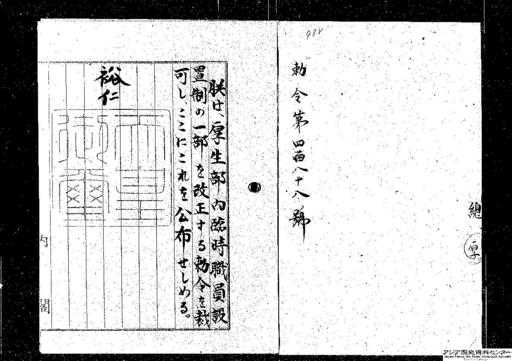 988
勅令第四百八十八號
總
厚
朕は、厚生部内臨時職員設
置制の一部を改正する勅令を裁
可し、ここにこれを公布せしめる。
裕仁
天皇
御璽
内閣
アジア歴史資料センター